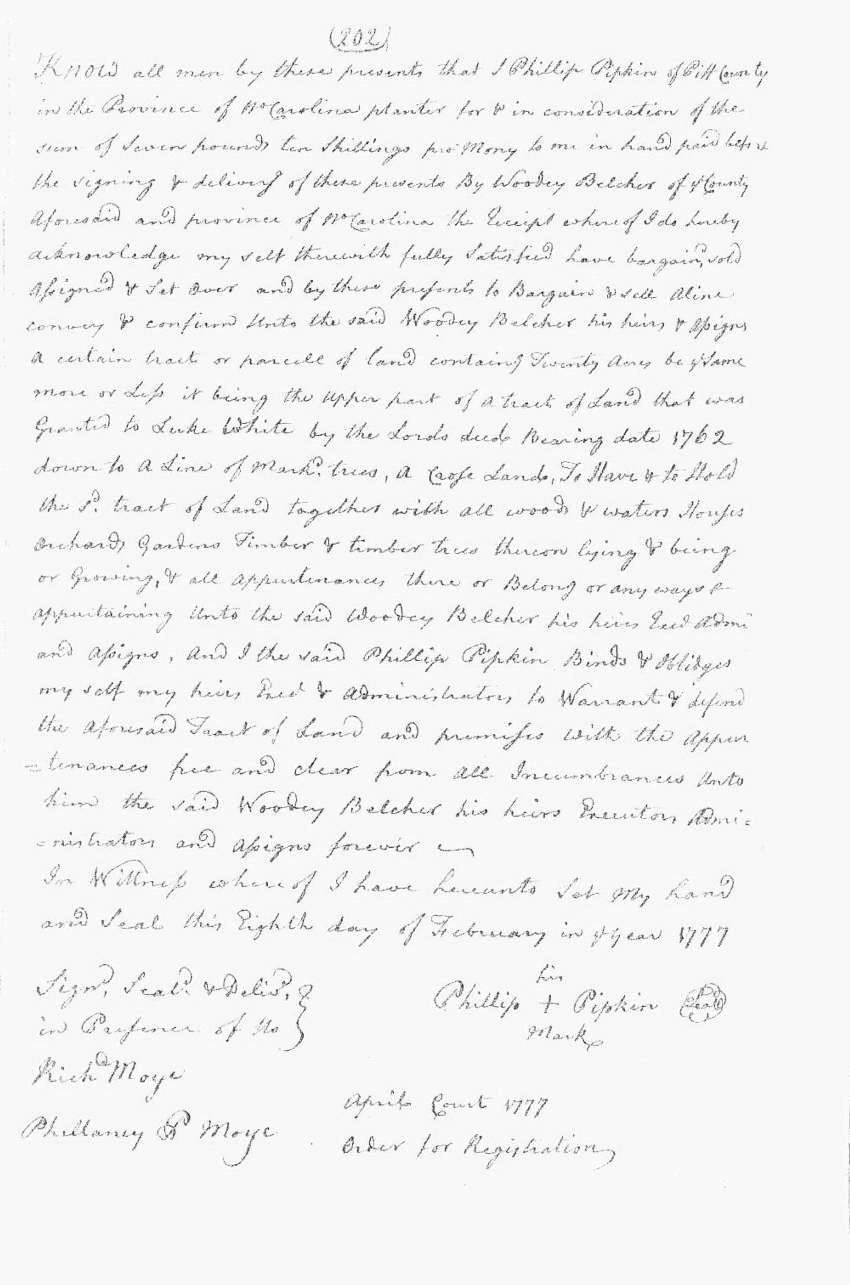 (202)
Know all men by these presents that I Phillip Pipkin of Pitt County
in the Province of No Carolina planter for & in consideration of the
sum of Seven pounds ten Shillings pro: Mony to me in hand paid before
the signing & delivery of these presents By Woodey Belcher of ye County
Aforesaid and province of No Carolina the Receipt where of I do hereby
acknowledge my self therewith fully Satisfied have bargain'd, sold
Assigned & Set Over and by these presents to Bargain & sell Aline
convey & confirm Unto the said Woodey Belcher his heirs & Assigns
A certain tract or parcell of land containg Twenty Acres be ye Same
more or Less it being the Upper part of A tract of Land that was
Granted to Luke White by the Lords deed Bearing date 1762
down to A Line of Markd. trees, A Cross Lands, To Have & to Hold
the sd. tract of Land together with all woods & waters Houses
Orchards Gardens Timber & timber trees thereon lying & being
or Growing, & all Appurtenances there or Belong or any ways
Appurtaining Unto the said Woodey Belcher his heirs Exed Admi
and Assigns, And I the said Phillip Pipkin Binds & Oblidges
my self my heirs Exed & Administrators to Warrant & defend
the Aforesaid Tract of Land and premisses with the Appur
=tenances free and clear from All Incumbrances Unto
him the said Woodey Belcher his heirs Executors Admi=
=nistrators and Assigns forever
In Wittness where of I have hereunto Set My hand
and Seal this Eighth day of February in ye year 1777
Signd, Seald. & Delivd.
in Presence of Us
his
Phillip + Pipkin Seal
Mark
Richd Moye
Phillaney P Moye
April Court 1777
Order for Registration